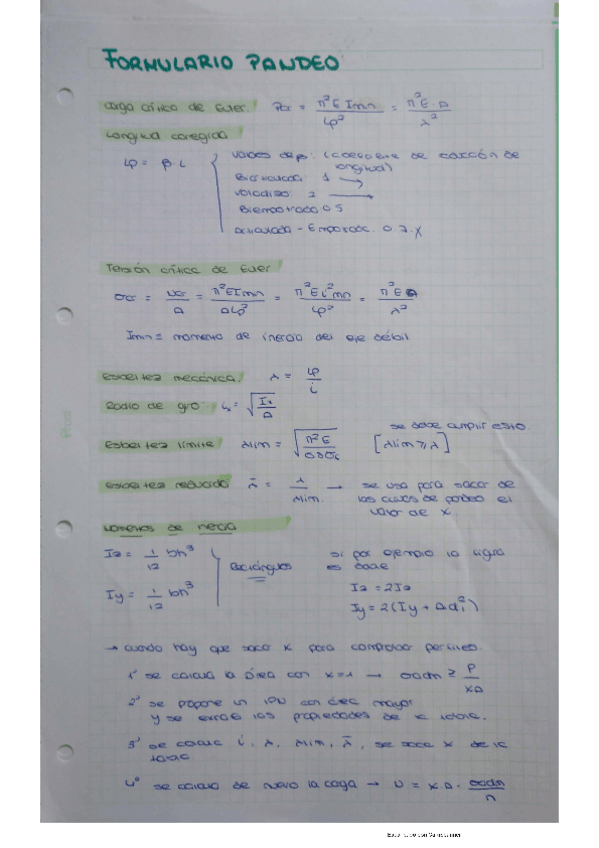 FORMULARIO PANDEO
Carga crítica de Euler. Pcr = π²E Imin / Lp² = π²E·A / λ²
Longitud corregida
Lp = β·L
Valores de β: (coeficiente de corrección de longitud)
Biarticulada: 1 →
Voladizo: 2 →
Biempotrado 0.5
Articulada - Empotrada: 0.7
Tensión crítica de Euler
σcr = Ncr / A = π²E Imin / A Lp² = π²E i²min / Lp² = π²E / λ²
Imin = momento de inercia del eje débil
Esbeltez mecánica. λ = Lp / i
Radio de giro: ix = √(Ix / A)
se debe cumplir esto.
Esbeltez límite λlim = √(π²E / 0'8σe) [λlim ≥ λ]
Esbeltez reducida λ̄ = λ / λlim. → se usa para sacar de
las curvas de pandeo el
valor de X.
Momentos de inercia
Iz = 1/12 bh³
Iy = 1/12 bh³
Rectángulos
si por ejemplo la viga
es doble
Iz = 2Iz
Iy = 2(Iy + A di²)
→ cuando hay que sacar X para comprobar perfiles.
1º se calcula la área con X=1 → σadm ≥ P / XA
2º se propone un IPN con área mayor
y se extrae las propiedades de la tabla.
3º se calcula i, λ, λlim, λ̄, se saca X de la
tabla
4º se calcula de nuevo la carga → N = X A · σadm / n
Escaneado con CamScanner